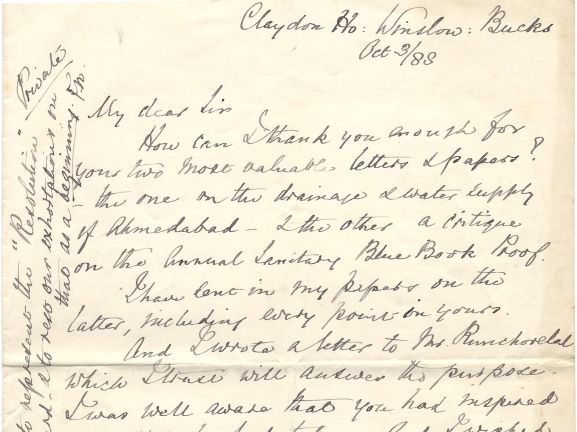 Claydon Ho: Winslow: Bucks
Oct 3/88
My dear Sir
How can I thank you enough for
your two most valuable letters & papers?
- the one on the drainage & water supply
of Ahmedabad - & the other a critique
on the Annual Sanitary Blue Book Proof.
I have sent in my papers on the
latter, including every point on yours.
And I wrote a letter to Mr. Runchorelal
which I trust will answer the purpose.
I was well aware that you had inspired
And I wished
Private
to represent the "Resolution"
& to rest our exhortations on
that as a beginning. F.N.